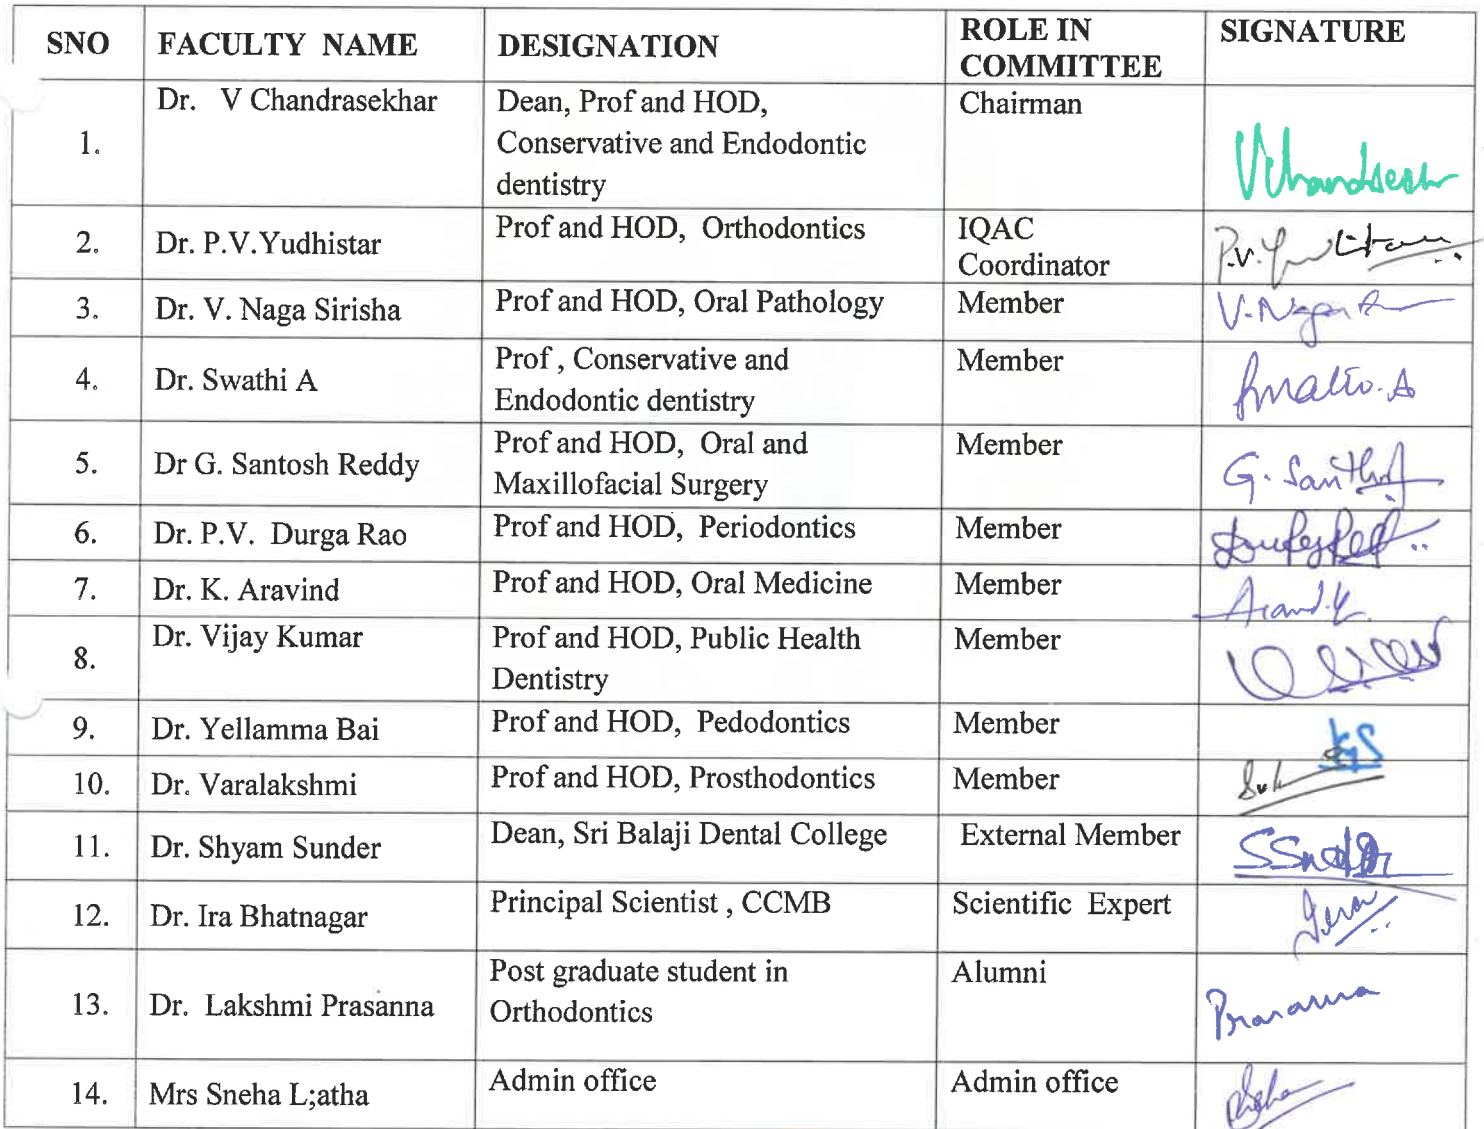 SNO FACULTY NAME DESIGNATION ROLE IN COMMITTEE SIGNATURE
1. Dr. V Chandrasekhar Dean, Prof and HOD, Chairman
Conservative and Endodontic
dentistry
2. Dr. P.V.Yudhistar Prof and HOD, Orthodontics IQAC
Coordinator
3. Dr. V. Naga Sirisha Prof and HOD, Oral Pathology Member V. Naga
4. Dr. Swathi A Prof , Conservative and Member
Endodontic dentistry
5. Dr G. Santosh Reddy Prof and HOD, Oral and Member G. Santhosh
Maxillofacial Surgery
6. Dr. P.V. Durga Rao Prof and HOD, Periodontics Member
7. Dr. K. Aravind Prof and HOD, Oral Medicine Member
8. Dr. Vijay Kumar Prof and HOD, Public Health Member
Dentistry
9. Dr. Yellamma Bai Prof and HOD, Pedodontics Member
10. Dr. Varalakshmi Prof and HOD, Prosthodontics Member
11. Dr. Shyam Sunder Dean, Sri Balaji Dental College External Member
12. Dr. Ira Bhatnagar Principal Scientist , CCMB Scientific Expert
13. Dr. Lakshmi Prasanna Post graduate student in Alumni Prasanna
Orthodontics
14. Mrs Sneha L;atha Admin office Admin office